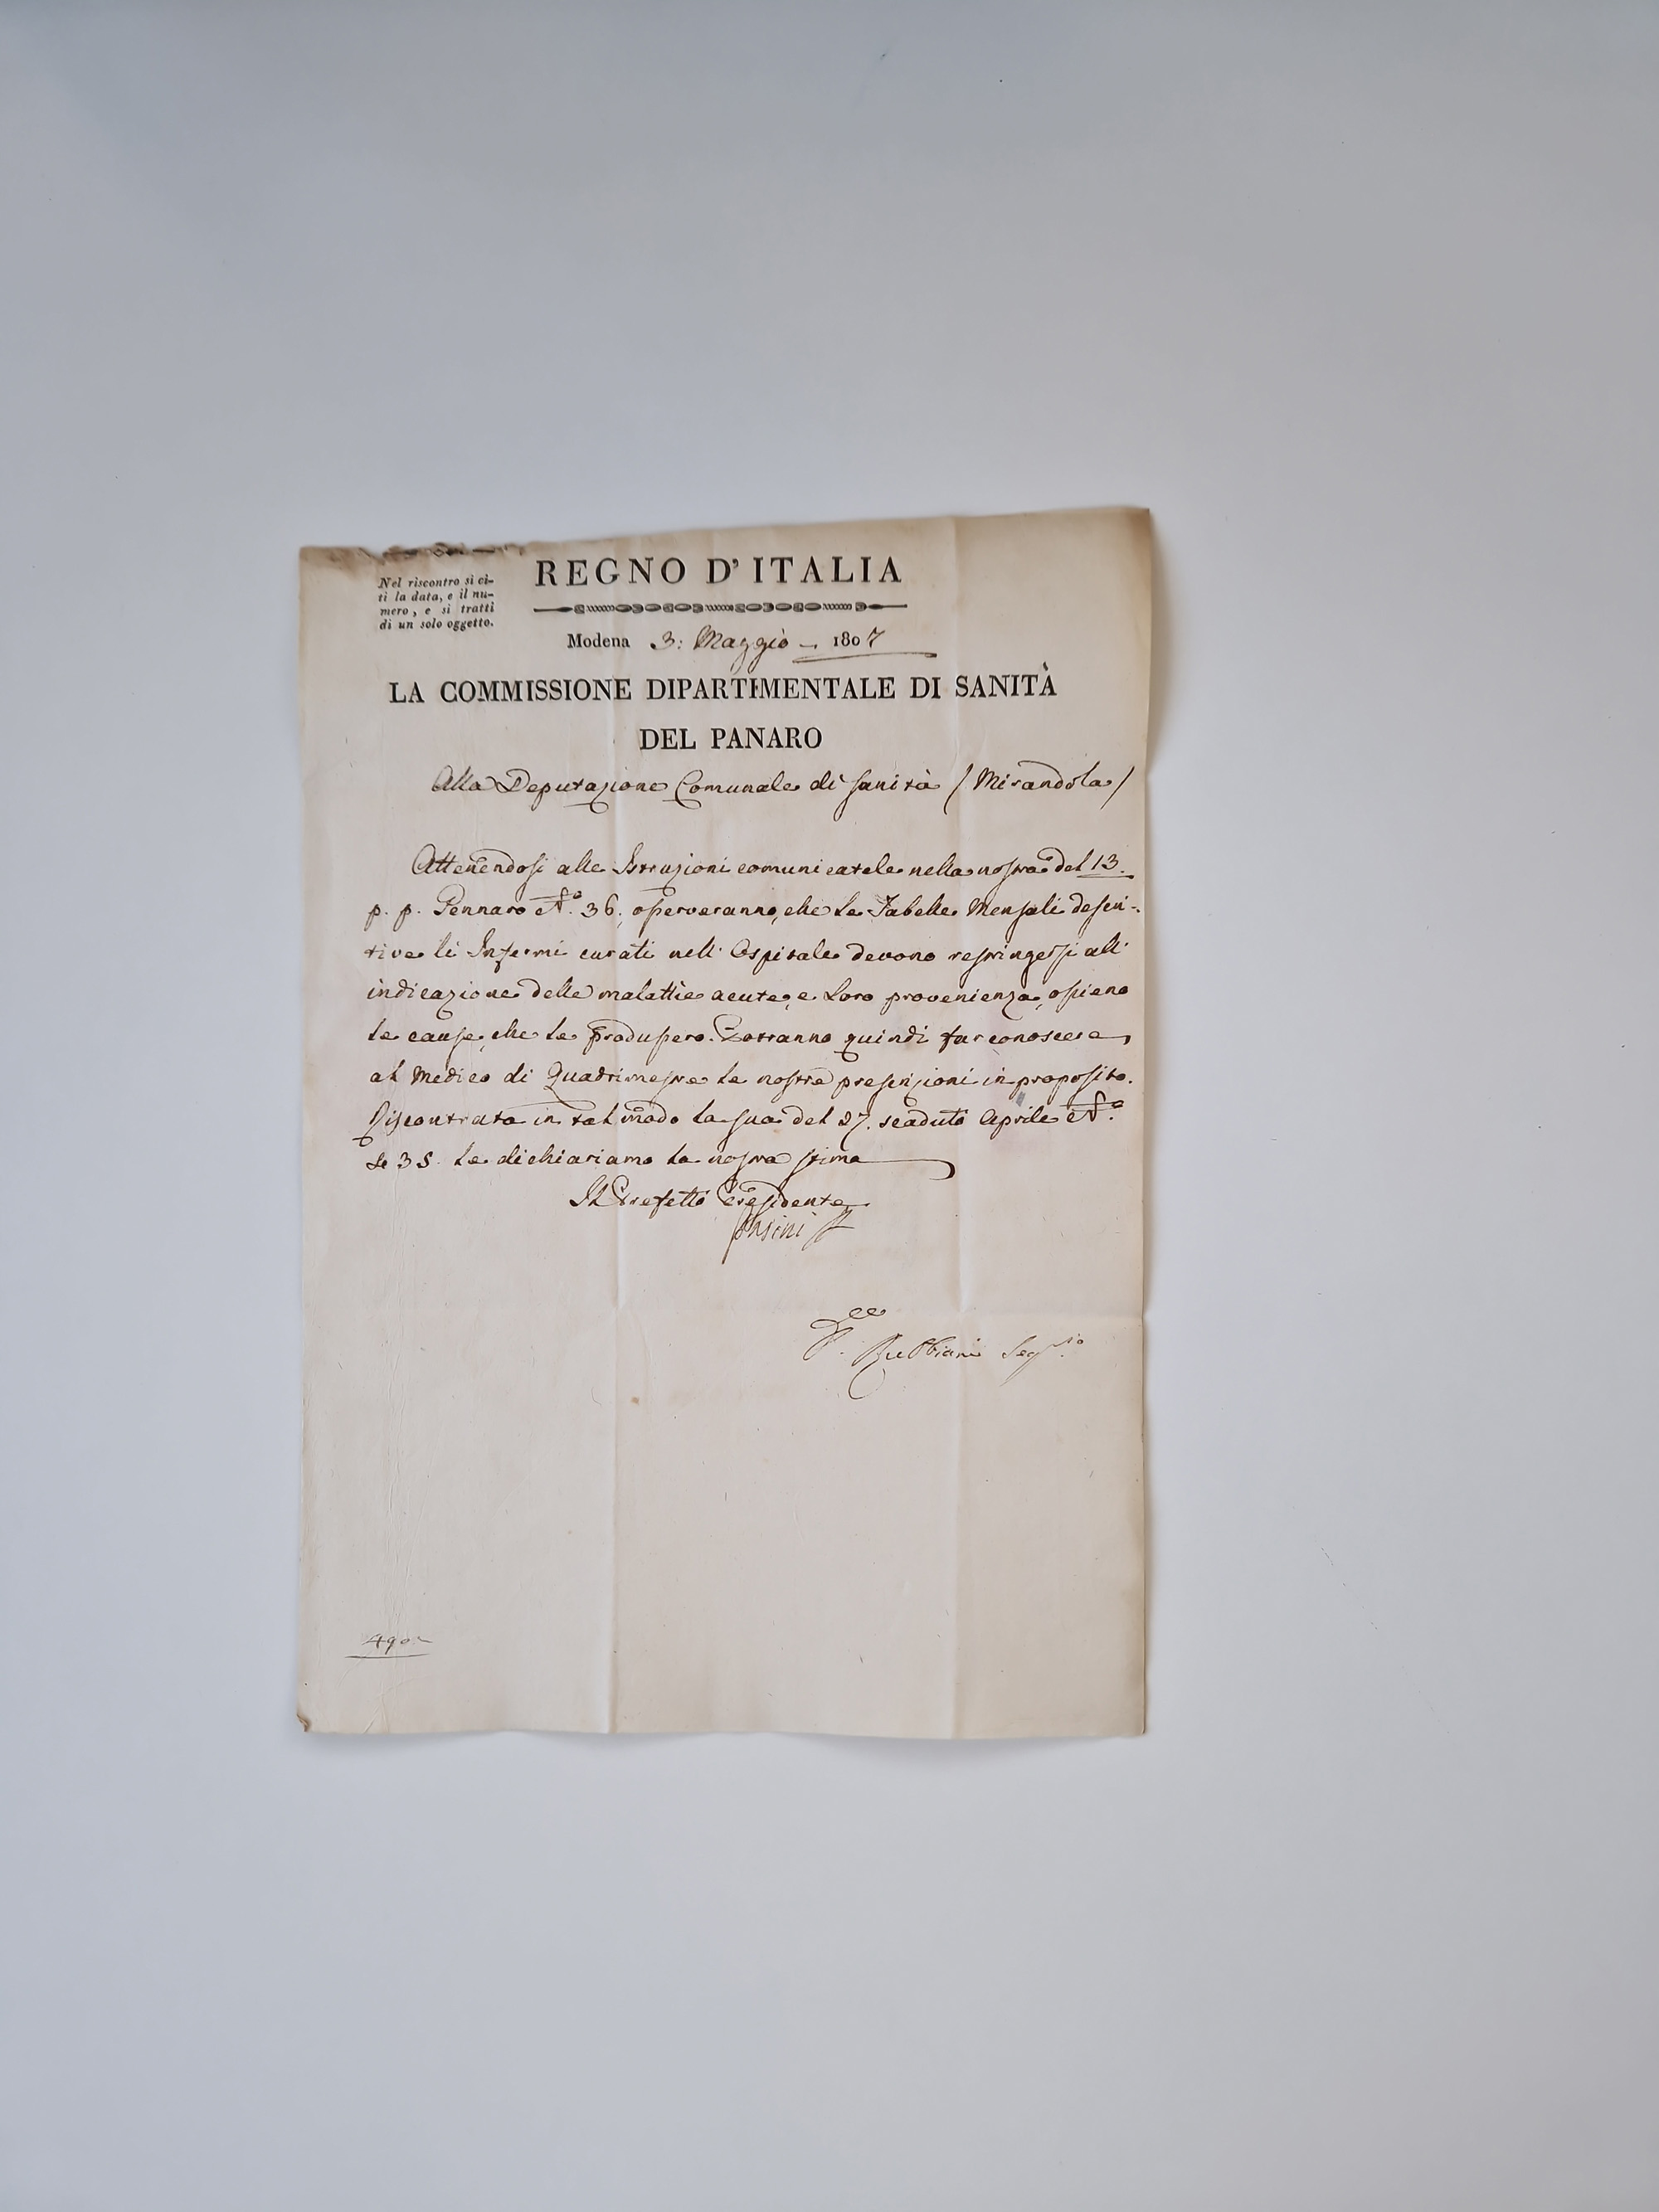 Nel riscontro si ci-
ti la data, e il nu-
mero, e si tratti
di un solo oggetto.
REGNO D'ITALIA
Modena 3: Maggio 1807
LA COMMISSIONE DIPARTIMENTALE DI SANITÀ
DEL PANARO
Alla Deputazione Comunale di Sanità / Mirandola /
Attenendosi alle Istruzioni comunicatele nella nostra del 13.
p. p. Gennaro N.º 36. osserveranno, che le Tabelle Mensali descrit-
tive li Infermi curati nell' Ospitale devono restringersi all'
indicazione delle malattie acute, e loro provenienza, ossieno
le cause, che le produssero. Potranno quindi far conoscere
al Medico di Quadrimestre le nostre prescrizioni in proposito.
Riscontrata in tal modo la sua del 27. scaduto Aprile N.º
35. Le dichiariamo la nostra stima
Il Prefetto Presidente
P. Rubbiani Seg.rio
490